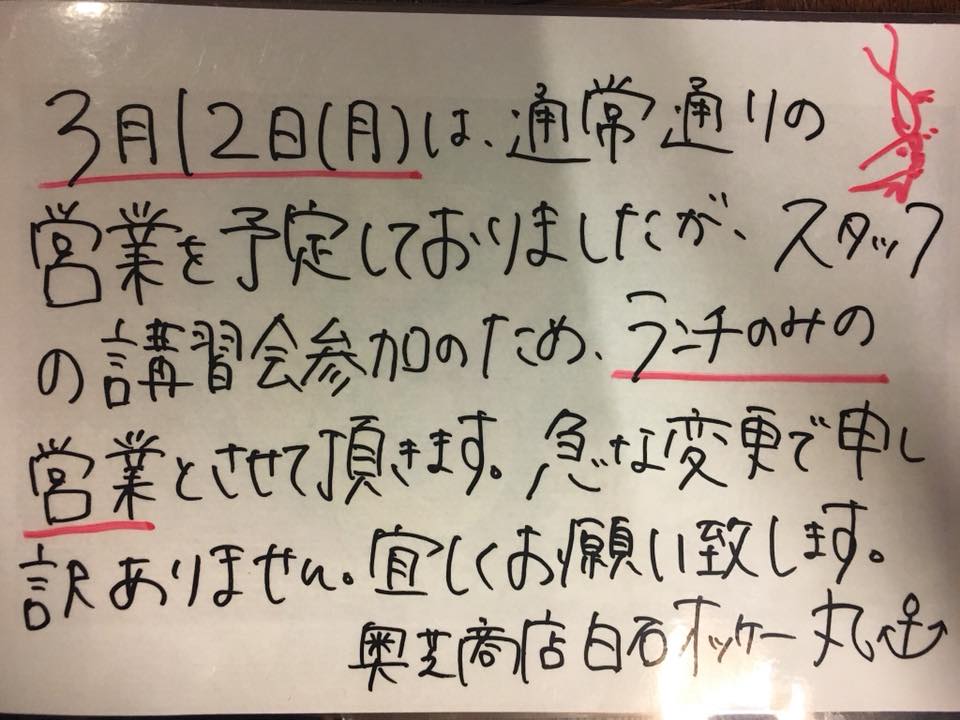 3月12日(月)は、通常通りの
営業を予定しておりましたが、スタッフ
の講習会参加のため、ランチのみの
営業とさせて頂きます。急な変更で申し
訳ありません。宜しくお願い致します。
奥芝商店白石オッケー丸